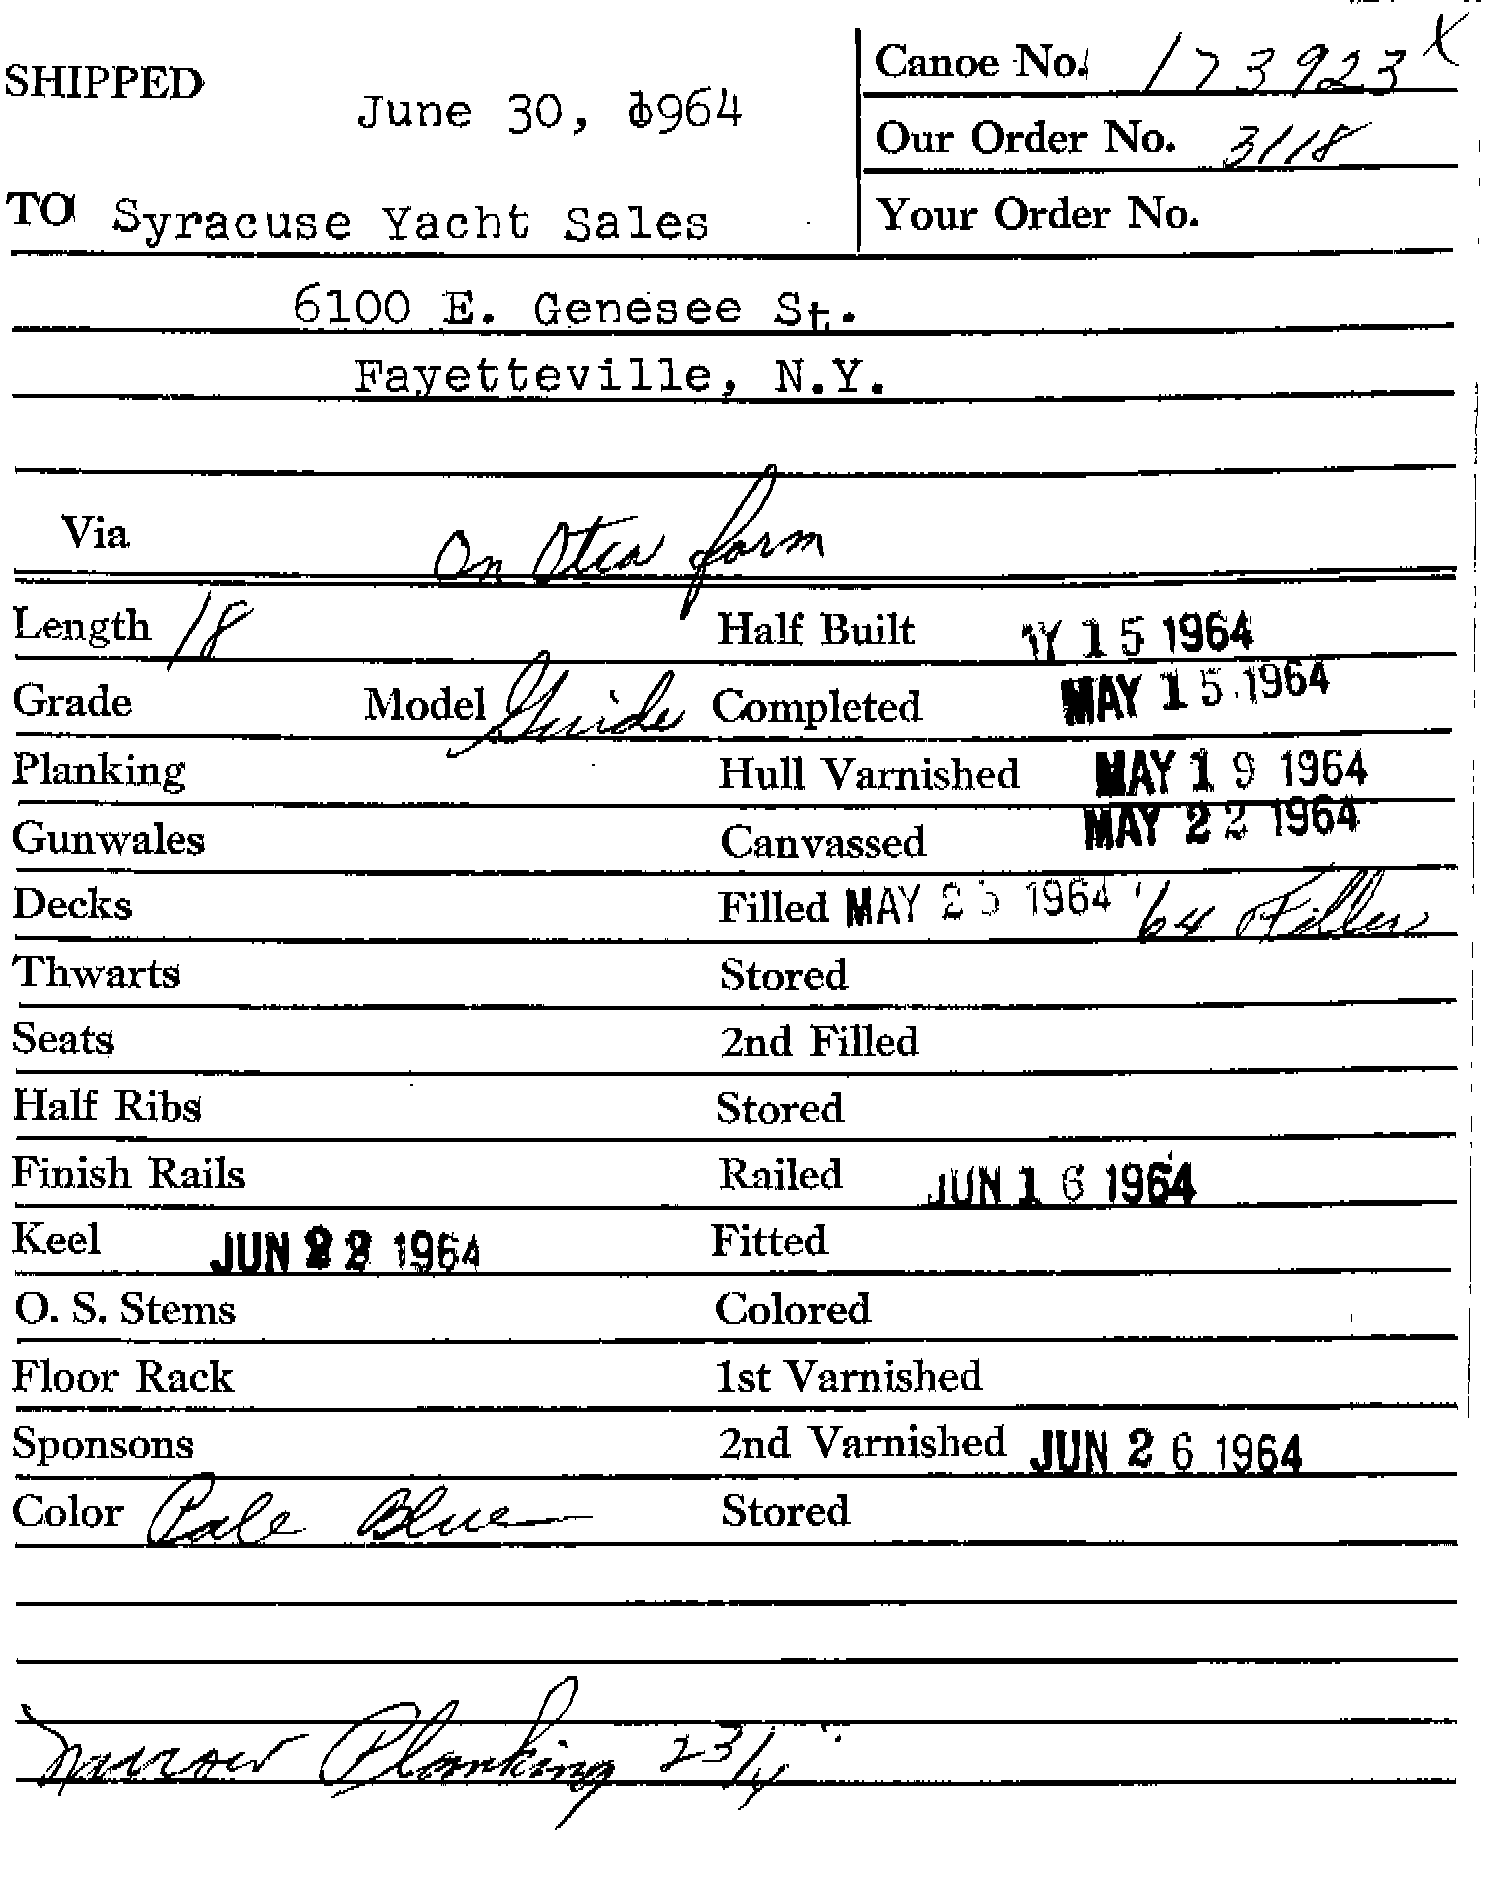 SHIPPED June 30, 1964
Canoe No. 173923 X
Our Order No. 3118
TO Syracuse Yacht Sales
Your Order No.
6100 E. Genesee St.
Fayetteville, N.Y.
Via On Otca form
Length 18 Half Built 15 1964
Grade Model Guide Completed MAY 15 1964
Planking Hull Varnished MAY 19 1964
Gunwales Canvassed MAY 22 1964
Decks Filled MAY 25 1964 '64 Filler
Thwarts Stored
Seats 2nd Filled
Half Ribs Stored
Finish Rails Railed JUN 16 1964
Keel JUN 22 1964 Fitted
O. S. Stems Colored
Floor Rack 1st Varnished
Sponsons 2nd Varnished JUN 26 1964
Color Pale Blue Stored
Narrow Planking 2 3/4"